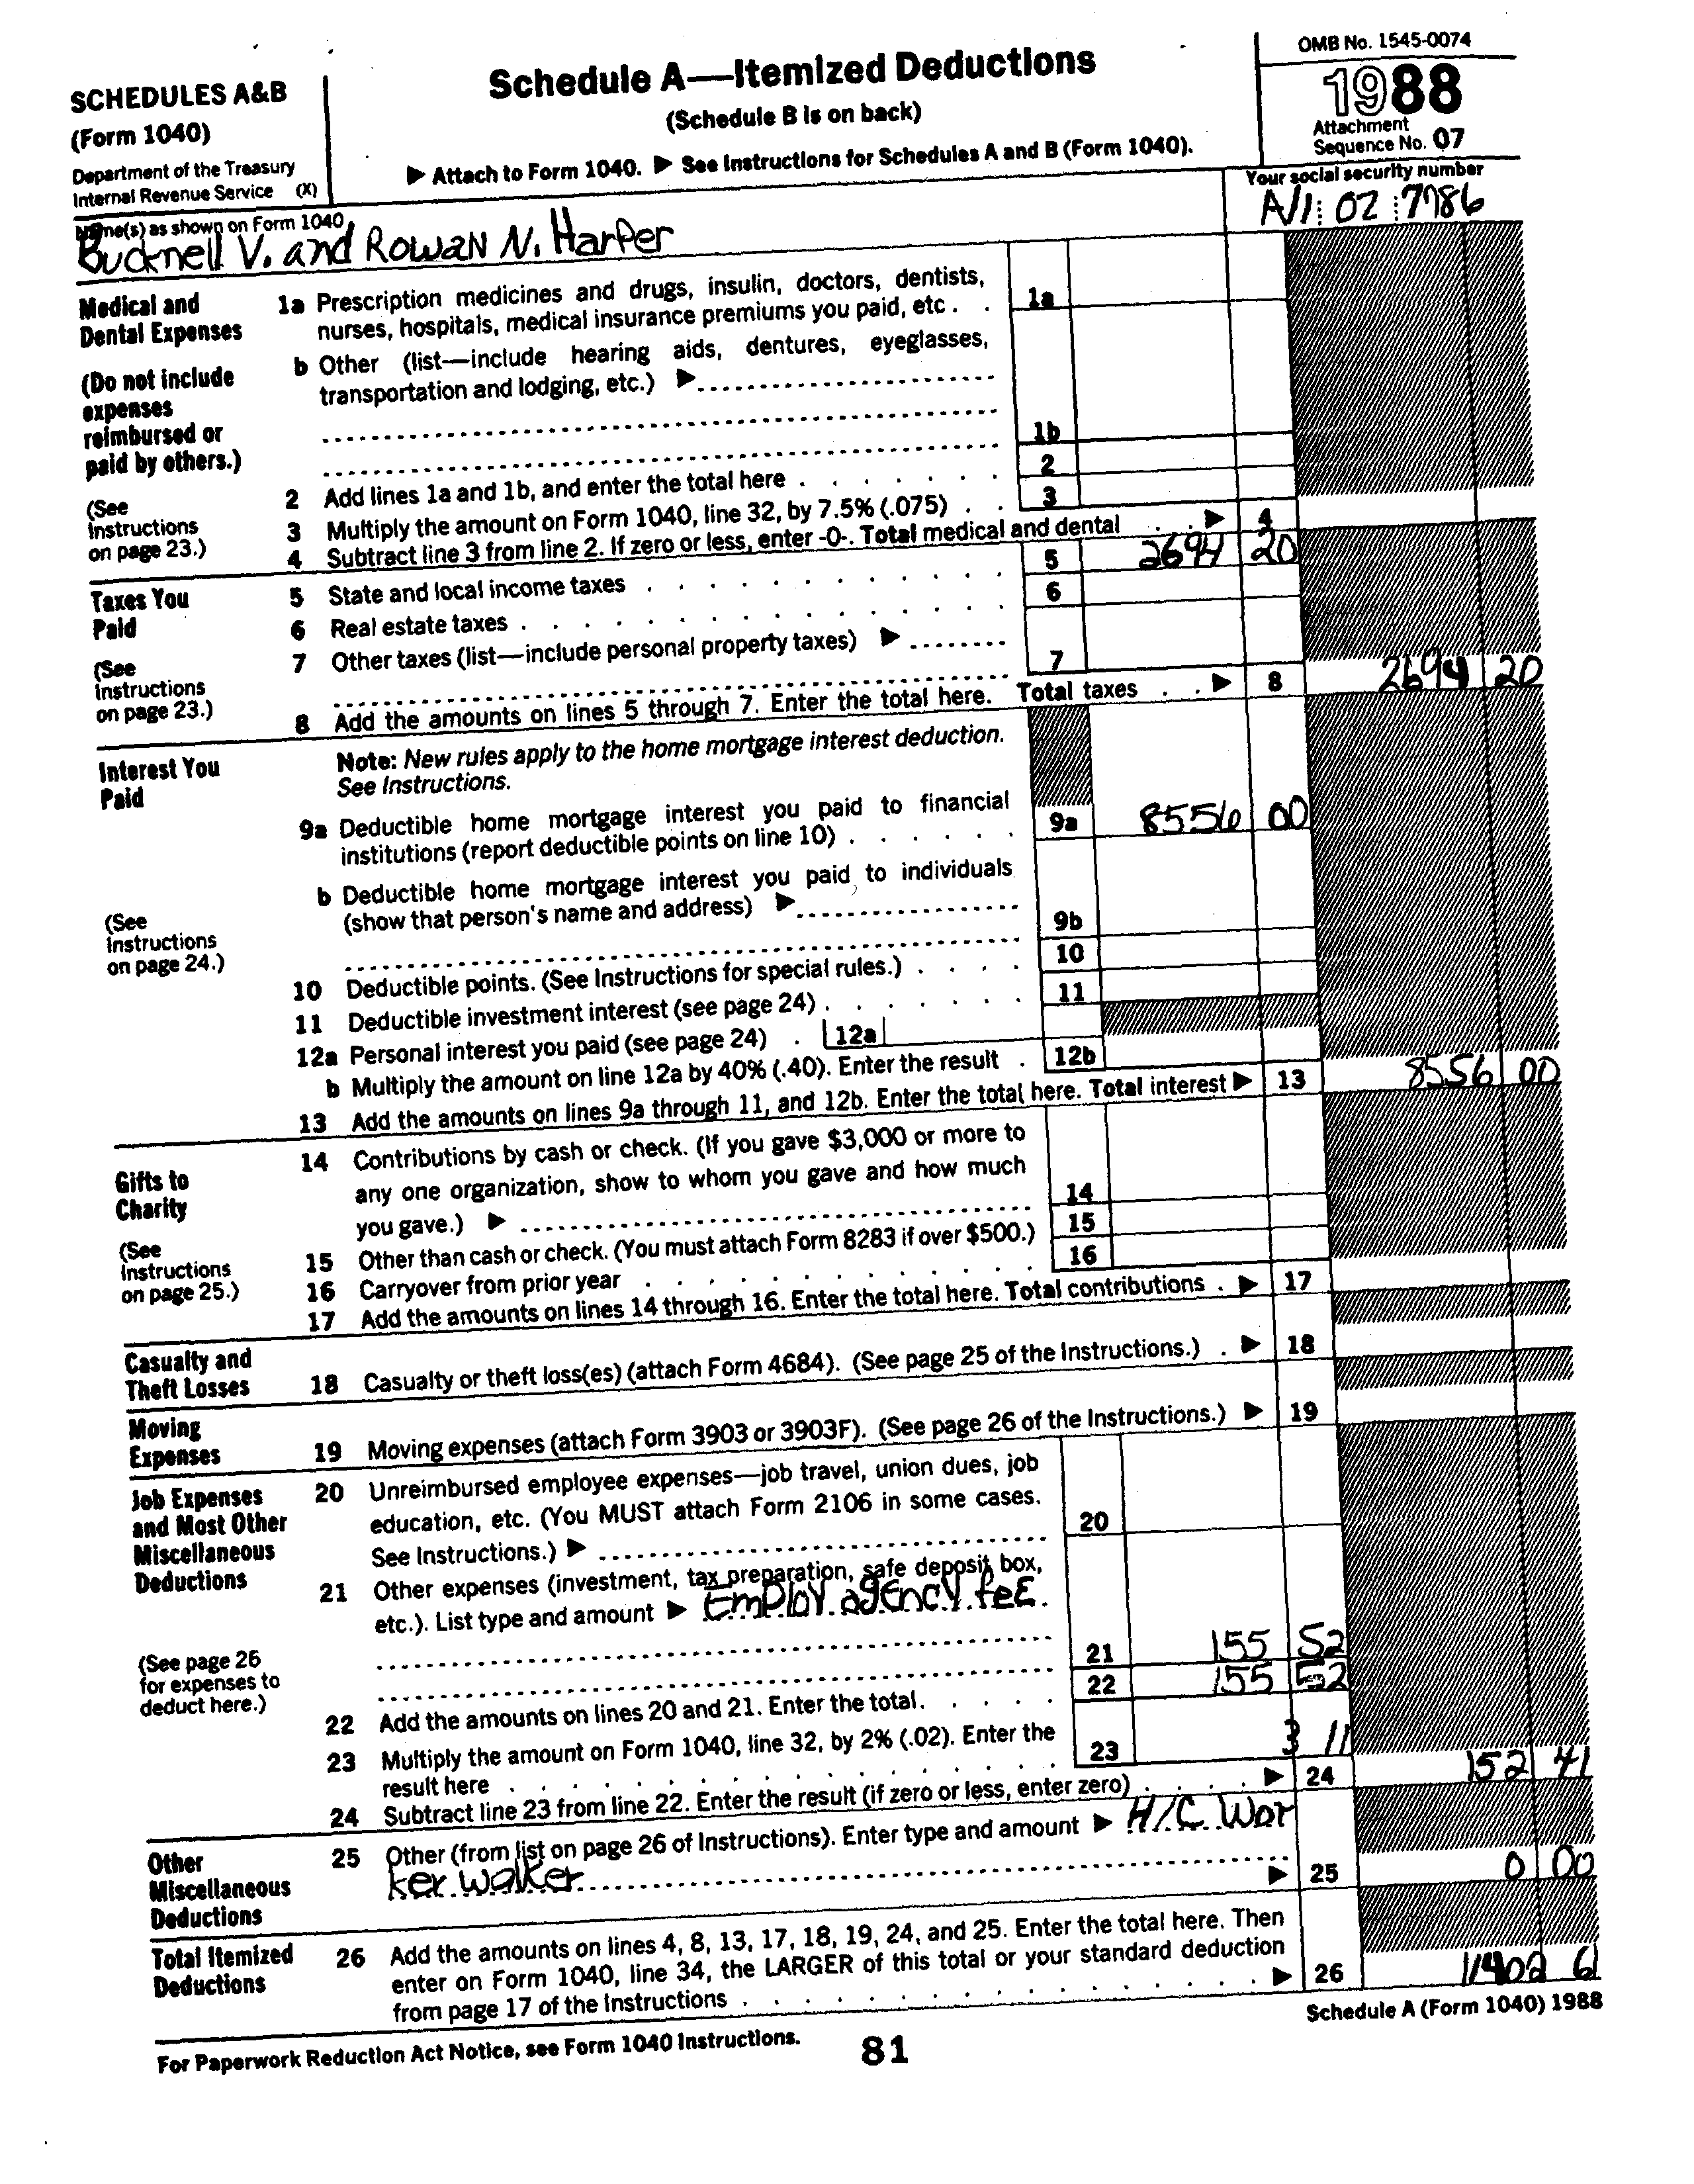 SCHEDULES A&B
(Form 1040)
Department of the Treasury
Internal Revenue Service (X)
Schedule A—Itemized Deductions
(Schedule B is on back)
▶ Attach to Form 1040. ▶ See Instructions for Schedules A and B (Form 1040).
OMB No. 1545-0074
1988
Attachment
Sequence No. 07
Name(s) as shown on Form 1040
Bucknell V. and Rowan N. Harper
Your social security number
02 7786
Medical and
Dental Expenses
(Do not include
expenses
reimbursed or
paid by others.)
(See
Instructions
on page 23.)
1a Prescription medicines and drugs, insulin, doctors, dentists,
nurses, hospitals, medical insurance premiums you paid, etc . . 1a
b Other (list—include hearing aids, dentures, eyeglasses,
transportation and lodging, etc.) ▶
1b
2 Add lines 1a and 1b, and enter the total here . . . . . . . 2
3 Multiply the amount on Form 1040, line 32, by 7.5% (.075) . . 3
4 Subtract line 3 from line 2. If zero or less, enter -0-. Total medical and dental . . ▶ 4
Taxes You
Paid
(See
Instructions
on page 23.)
5 State and local income taxes . . . . . . . . . . . . 5 2694 20
6 Real estate taxes . . . . . . . . . . . . . . . 6
7 Other taxes (list—include personal property taxes) ▶
7
8 Add the amounts on lines 5 through 7. Enter the total here. Total taxes . . ▶ 8 2694 20
Interest You
Paid
(See
Instructions
on page 24.)
Note: New rules apply to the home mortgage interest deduction.
See Instructions.
9a Deductible home mortgage interest you paid to financial
institutions (report deductible points on line 10) . . . . . . 9a 8556 00
b Deductible home mortgage interest you paid to individuals
(show that person's name and address) ▶
9b
10 Deductible points. (See Instructions for special rules.) . . . . 10
11 Deductible investment interest (see page 24) . . . . . . . 11
12a Personal interest you paid (see page 24) . 12a
b Multiply the amount on line 12a by 40% (.40). Enter the result . 12b
13 Add the amounts on lines 9a through 11, and 12b. Enter the total here. Total interest ▶ 13 8556 00
Gifts to
Charity
(See
Instructions
on page 25.)
14 Contributions by cash or check. (If you gave $3,000 or more to
any one organization, show to whom you gave and how much
you gave.) ▶ 14
15 Other than cash or check. (You must attach Form 8283 if over $500.) 15
16 Carryover from prior year . . . . . . . . . . . . . 16
17 Add the amounts on lines 14 through 16. Enter the total here. Total contributions . ▶ 17
Casualty and
Theft Losses
18 Casualty or theft loss(es) (attach Form 4684). (See page 25 of the Instructions.) . ▶ 18
Moving
Expenses
19 Moving expenses (attach Form 3903 or 3903F). (See page 26 of the Instructions.) ▶ 19
Job Expenses
and Most Other
Miscellaneous
Deductions
(See page 26
for expenses to
deduct here.)
20 Unreimbursed employee expenses—job travel, union dues, job
education, etc. (You MUST attach Form 2106 in some cases.
See Instructions.) ▶ 20
21 Other expenses (investment, tax preparation, safe deposit box,
etc.). List type and amount ▶ Employ. agency fee
21 155 52
22 Add the amounts on lines 20 and 21. Enter the total. . . . . 22 155 52
23 Multiply the amount on Form 1040, line 32, by 2% (.02). Enter the
result here . . . . . . . . . . . . . . . . 23 3 11
24 Subtract line 23 from line 22. Enter the result (if zero or less, enter zero) . . . . ▶ 24 152 41
Other
Miscellaneous
Deductions
25 Other (from list on page 26 of Instructions). Enter type and amount ▶ H/C Wor
ker walker ▶ 25 0 00
Total Itemized
Deductions
26 Add the amounts on lines 4, 8, 13, 17, 18, 19, 24, and 25. Enter the total here. Then
enter on Form 1040, line 34, the LARGER of this total or your standard deduction
from page 17 of the Instructions . . . . . . . . . . . . . . ▶ 26 11402 61
For Paperwork Reduction Act Notice, see Form 1040 Instructions.
81
Schedule A (Form 1040) 1988